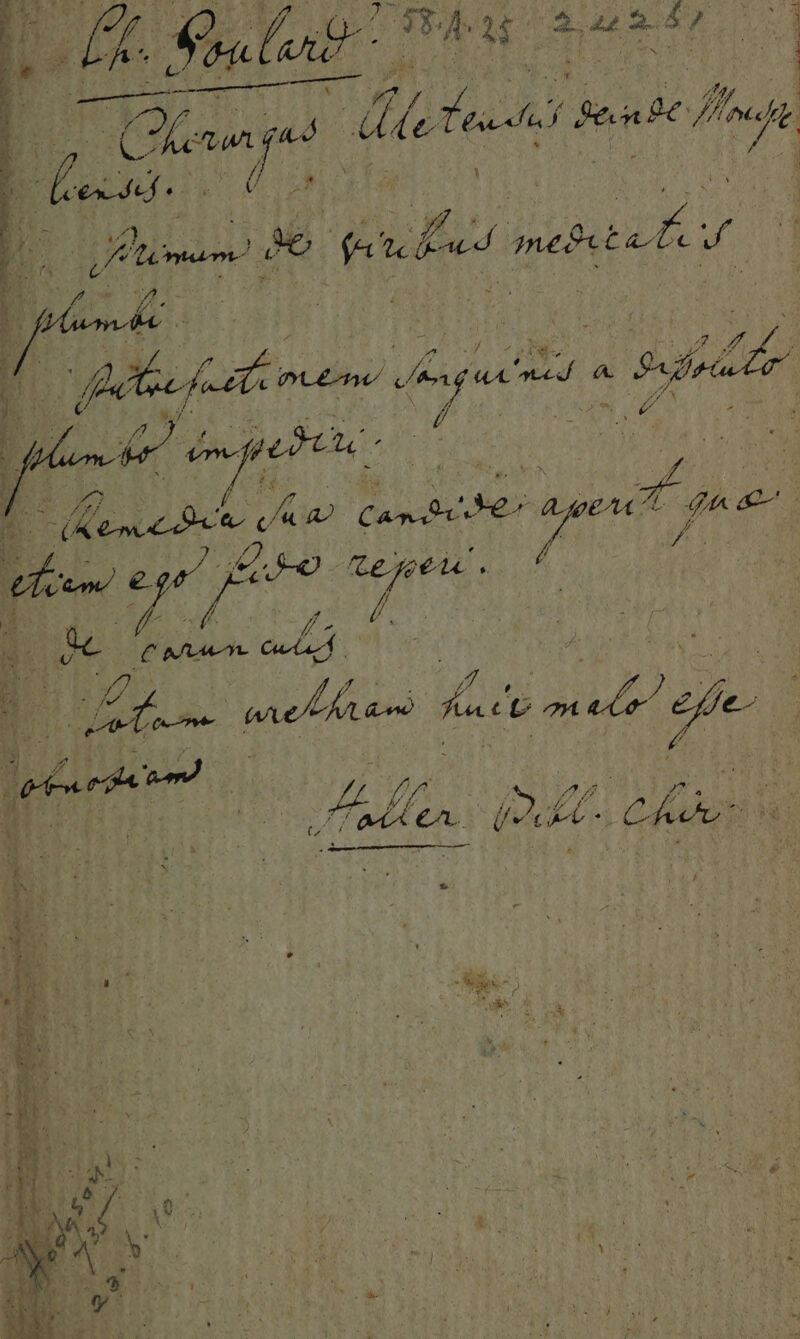 Ch. Goulard
Chirurgus Uletendus deinde Monspe
liensis.
Primum de viribus meditatis
plumbi
Putrefactionem sanguinis a dissoluto
plumbo impediri.
Remedia sua candide aperit quae
etiam ego fido reperi.
De carunculis.
totam urethram huic malo esse
obnoxiam
Haller. Bibl. Chir.